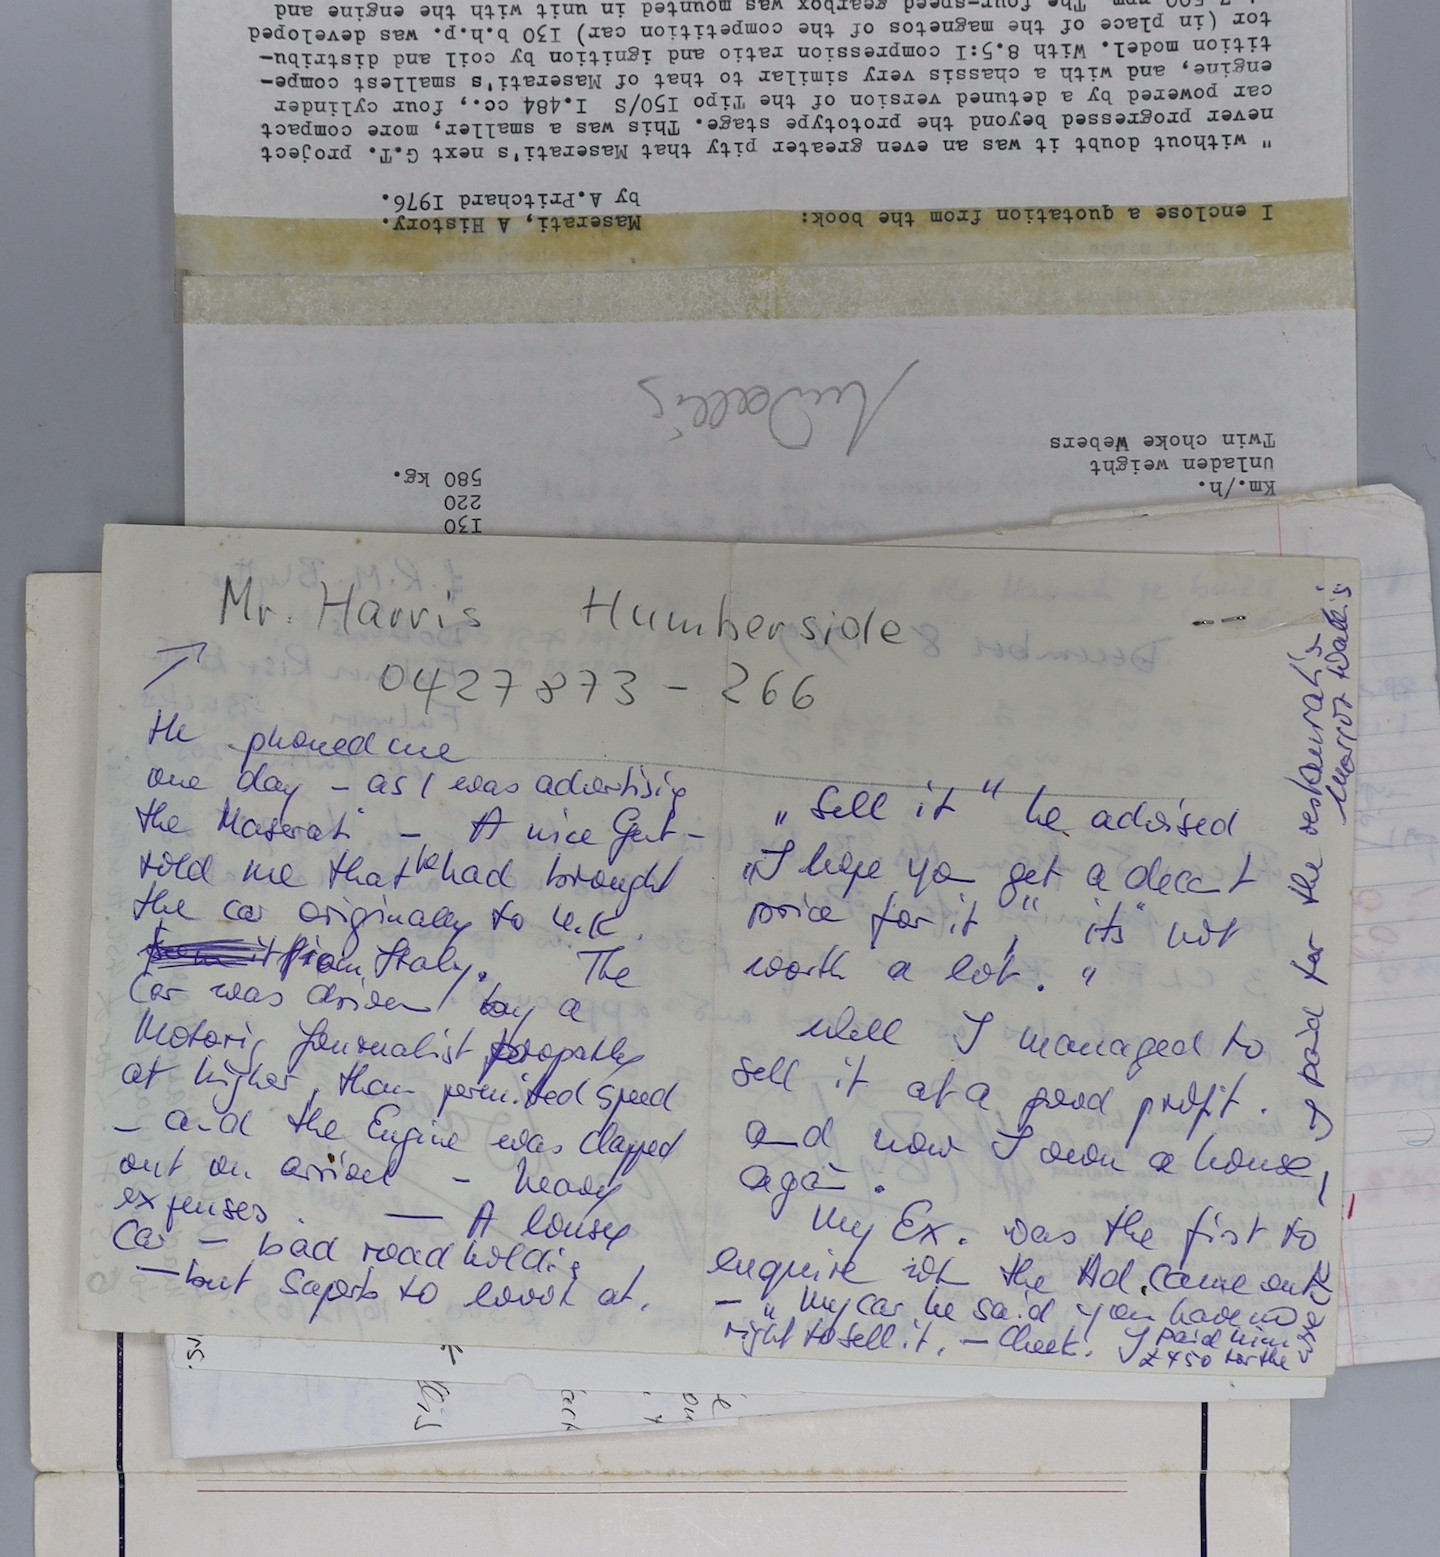 tor (in place of the magnetos of the competition car) I30 b.h.p. was developed
tition model. With 8.5:I compression ratio and ignition by coil and distribu-
engine, and with a chassis very similar to that of Maserati's smallest compe-
car powered by a detuned version of the Tipo I50/S I.484 cc., four cylinder
never progressed beyond the prototype stage. This was a smaller, more compact
" without doubt it was an even greater pity that Maserati's next G.T. project
by A.Pritchard I976.
I enclose a quotation from the book: Maserati, A History.
Twin choke Webers
Unladen weight 580 kg.
Km./h. 220
I30
Mr. Harris Humberside
0427873 - 266
He phoned me
one day - as I was advertising
the Maserati - A nice Gent -
told me that he had brought
the car originally to U.K.
from Italy. The
Car was driven by a
Motoring Journalist
at higher, than permitted speed
- and the Engine was clapped
out on arrival - heavy
expenses. — A lousy
Car - bad roadholding
- but Superb to look at.
"Sell it" he advised
"I hope you get a decent
price for it", "its not
worth a lot."
Well I managed to
sell it at a good profit.
and now I own a house,
again.
My Ex. was the first to
enquire when the Ad. came out
- "My car he said you have no
right to sell it. - Cheek. I paid him
£450 for the
I paid for the restaurati